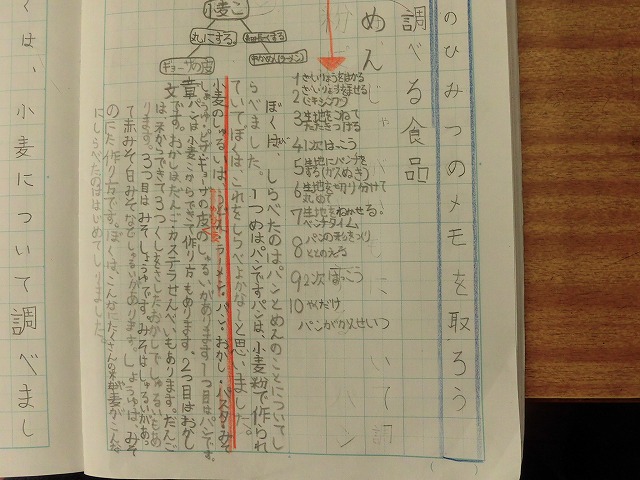 のひみつのメモを取ろう
調べる食品
めん
小麦こ
丸にする。
細長くする
ギョーザの皮
中かめん(ラーメン)
1 ざいりょうをはかる
2 ざいりょうをまぜる
(ミキシング)
3 生地をこねて
たたきつける
4 1次はっこう
5 生地にパンチを
する(ガスぬき)
6 生地を切り分けて
丸める
7 生地をねかせる。
ベンチタイム
8 パンの形をつくり
ととのえる
9 2次はっこう
10 やくだけ
パンがかんせい
ぼくが、しらべたのはパンとめんのことについてし
らべました。1つめはパンですパンは、小麦粉で作られ
ていてぼくは、これをしらべよかな〜と思いました。
小麦のしゅるいは、うどん・ラーメン・パン・おかし・パスタ・みそ
しょうゆ・ピザ・ギョーザの皮のしゅるいがあります1つ目はパンです。
章パンは小麦こからできて作り方もあります。2つ目はおかし
文です。おかしはだんご・カステラせんべいもあります。だんご
は、米からできて3つくし
ります。3つ目はみそしょうゆです。みそはしゅるいがあ。
て赤みそ白みそなどしゅるいがあります。しょうゆは、みそ
のにた作り方です。ぼくは、こんなにたくさんの
にしらべたのははじめてしりました。
くは、小麦について調べまし